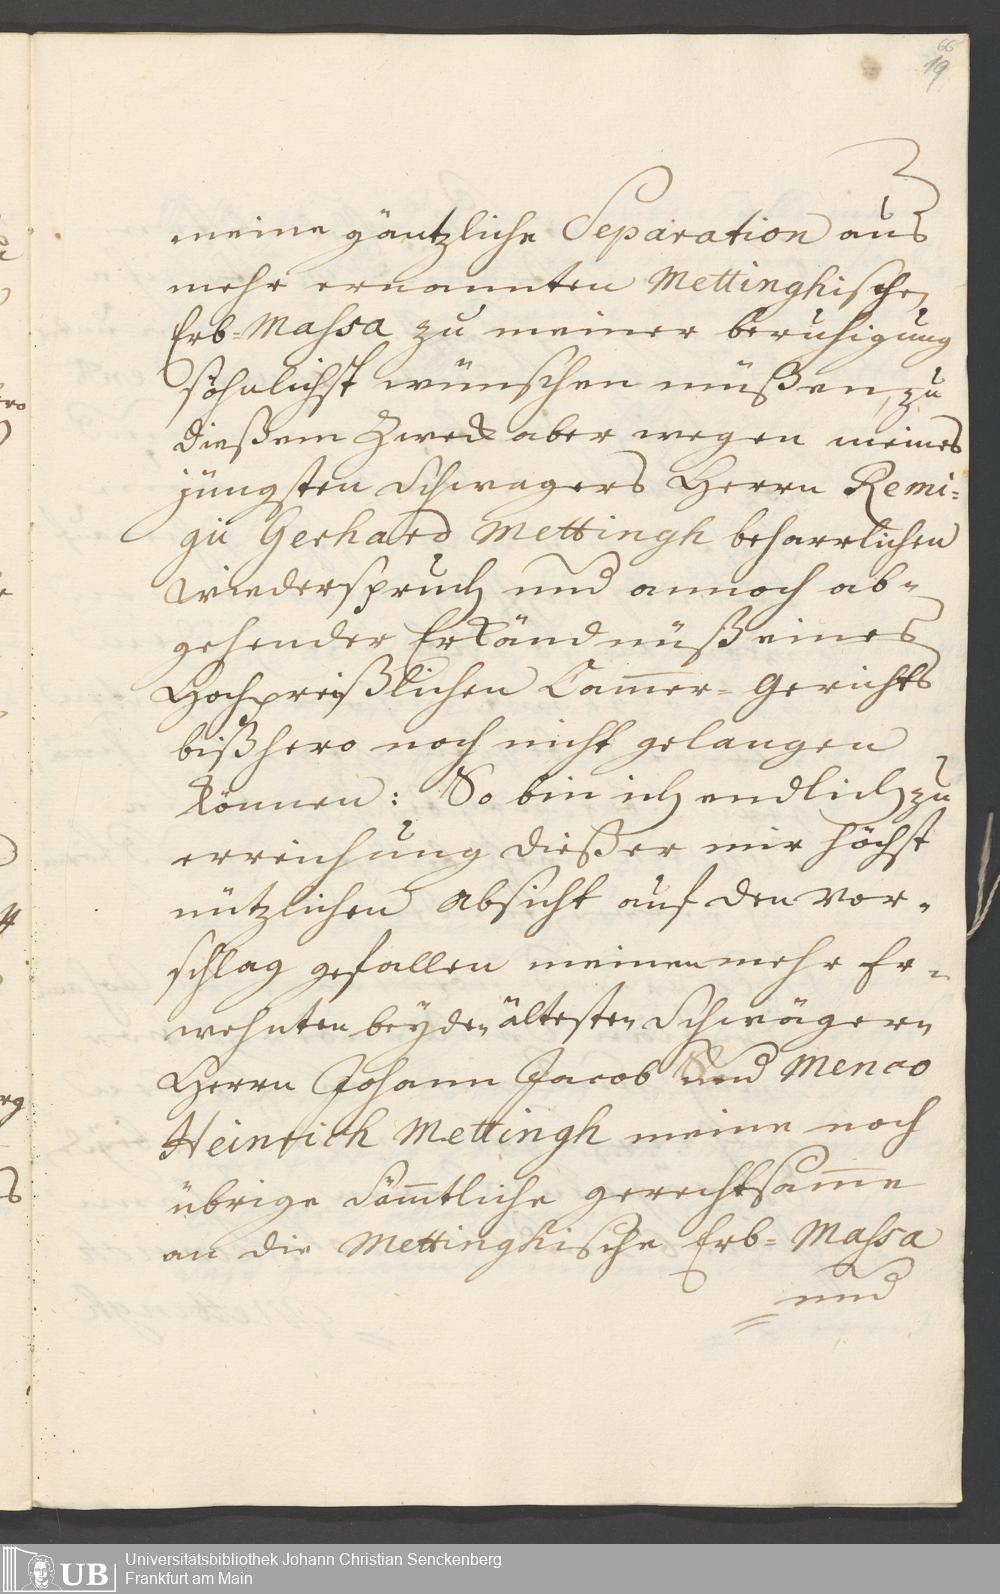 66
19
meine gäntzliche Separation aus
mehr ernannten Mettinghischen
Erb-Massa zu meiner beruhigung
söhnlichst wünschen müßen, zu
dießem Zweck aber wegen meines
jüngsten Schwagers Herrn Remi-
gii Gerhard Mettingh beharrlichen
wiederspruch und annoch ab-
gehender Erkändnüß eines
Hochpreißlichen Cam̄er-Gerichts
bißhero noch nicht gelangen
können: So bin ich endlich zu
erreichung dießer mir höchst
nützlichen Absicht auf den Vor-
schlag gefallen meinen mehr Er-
wehnten beyden ältesten Schwägern
Herrn Johann Jacob und Menco
Heinrich Mettingh meine noch
übrige säm̄tliche gerechtsam̄e
an die Mettinghische Erb-Massa
und
Universitätsbibliothek Johann Christian Senckenberg
Frankfurt am Main
UB